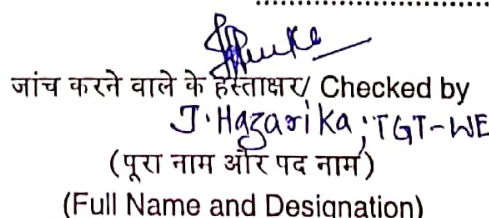 जांच करने वाले के हस्ताक्षर/ Checked by
J. Hazarika, TGT-WE
(पूरा नाम और पद नाम)
(Full Name and Designation)